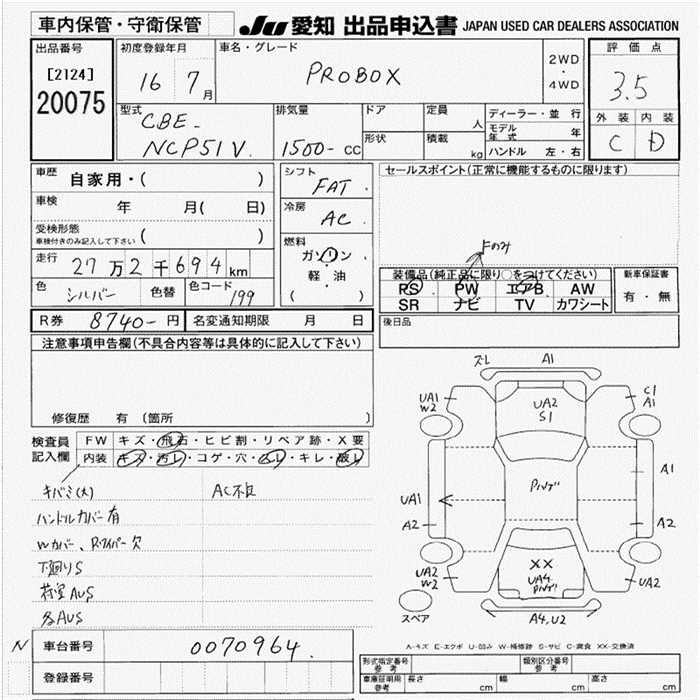 車内保管・守衛保管
JU 愛知 出品申込書 JAPAN USED CAR DEALERS ASSOCIATION
出品番号
[2124]
20075
初度登録年月
16 7月
車名・グレード
PROBOX
2WD
・
4WD
評価点
3.5
外装 内装
C D
型式
CBE-
NCP51V.
排気量
1500- CC
ドア
形状
定員
人
積載
kg
ディーラー・並行
モデル年式 年
ハンドル 左・右
車歴
自家用・( )
車検
年 月( 日)
受検形態
車検付きのみ記入して下さい ( )
走行
27万2千694km
色
シルバー
色替
色コード
199
シフト
FAT.
冷房
AC.
燃料
ガソリン
・
軽・油
( )
セールスポイント(正常に機能するものに限ります)
Fのみ
装備品(純正品に限り○をつけてください)
PS PW エアB AW
SR ナビ TV カワシート
新車保証書
有・無
後日品
R券 8740-円 名変通知期限 月 日
注意事項申告欄(不具合内容等は具体的に記入して下さい)
修復歴 有 (箇所 )
検査員
記入欄
FW キズ・飛石・ヒビ割・リペア跡・X要
内装 キズ・汚レ・コゲ・穴・スレ・キレ・破レ
キバミ(大) AC不良
ハンドルカバー有
Wカバー、Rワイパー欠
下廻りS
荷室AUS
各AUS
ズレ A1
UA1
W2
UA2
S1
C1
A1
UA1
A2
Pハゲ
A1
A2
UA2
W2
XX
UA4
Pハゲ
UA2
スペア
A4,U2
A-キズ E-エクボ U-凹み W-補修跡 S-サビ C-腐食 XX-交換済
N 車台番号 0070964.
登録番号
形式指定番号
参考
類別区分番号
参考
車庫証明用
参考
長さ cm 幅 cm 高さ cm